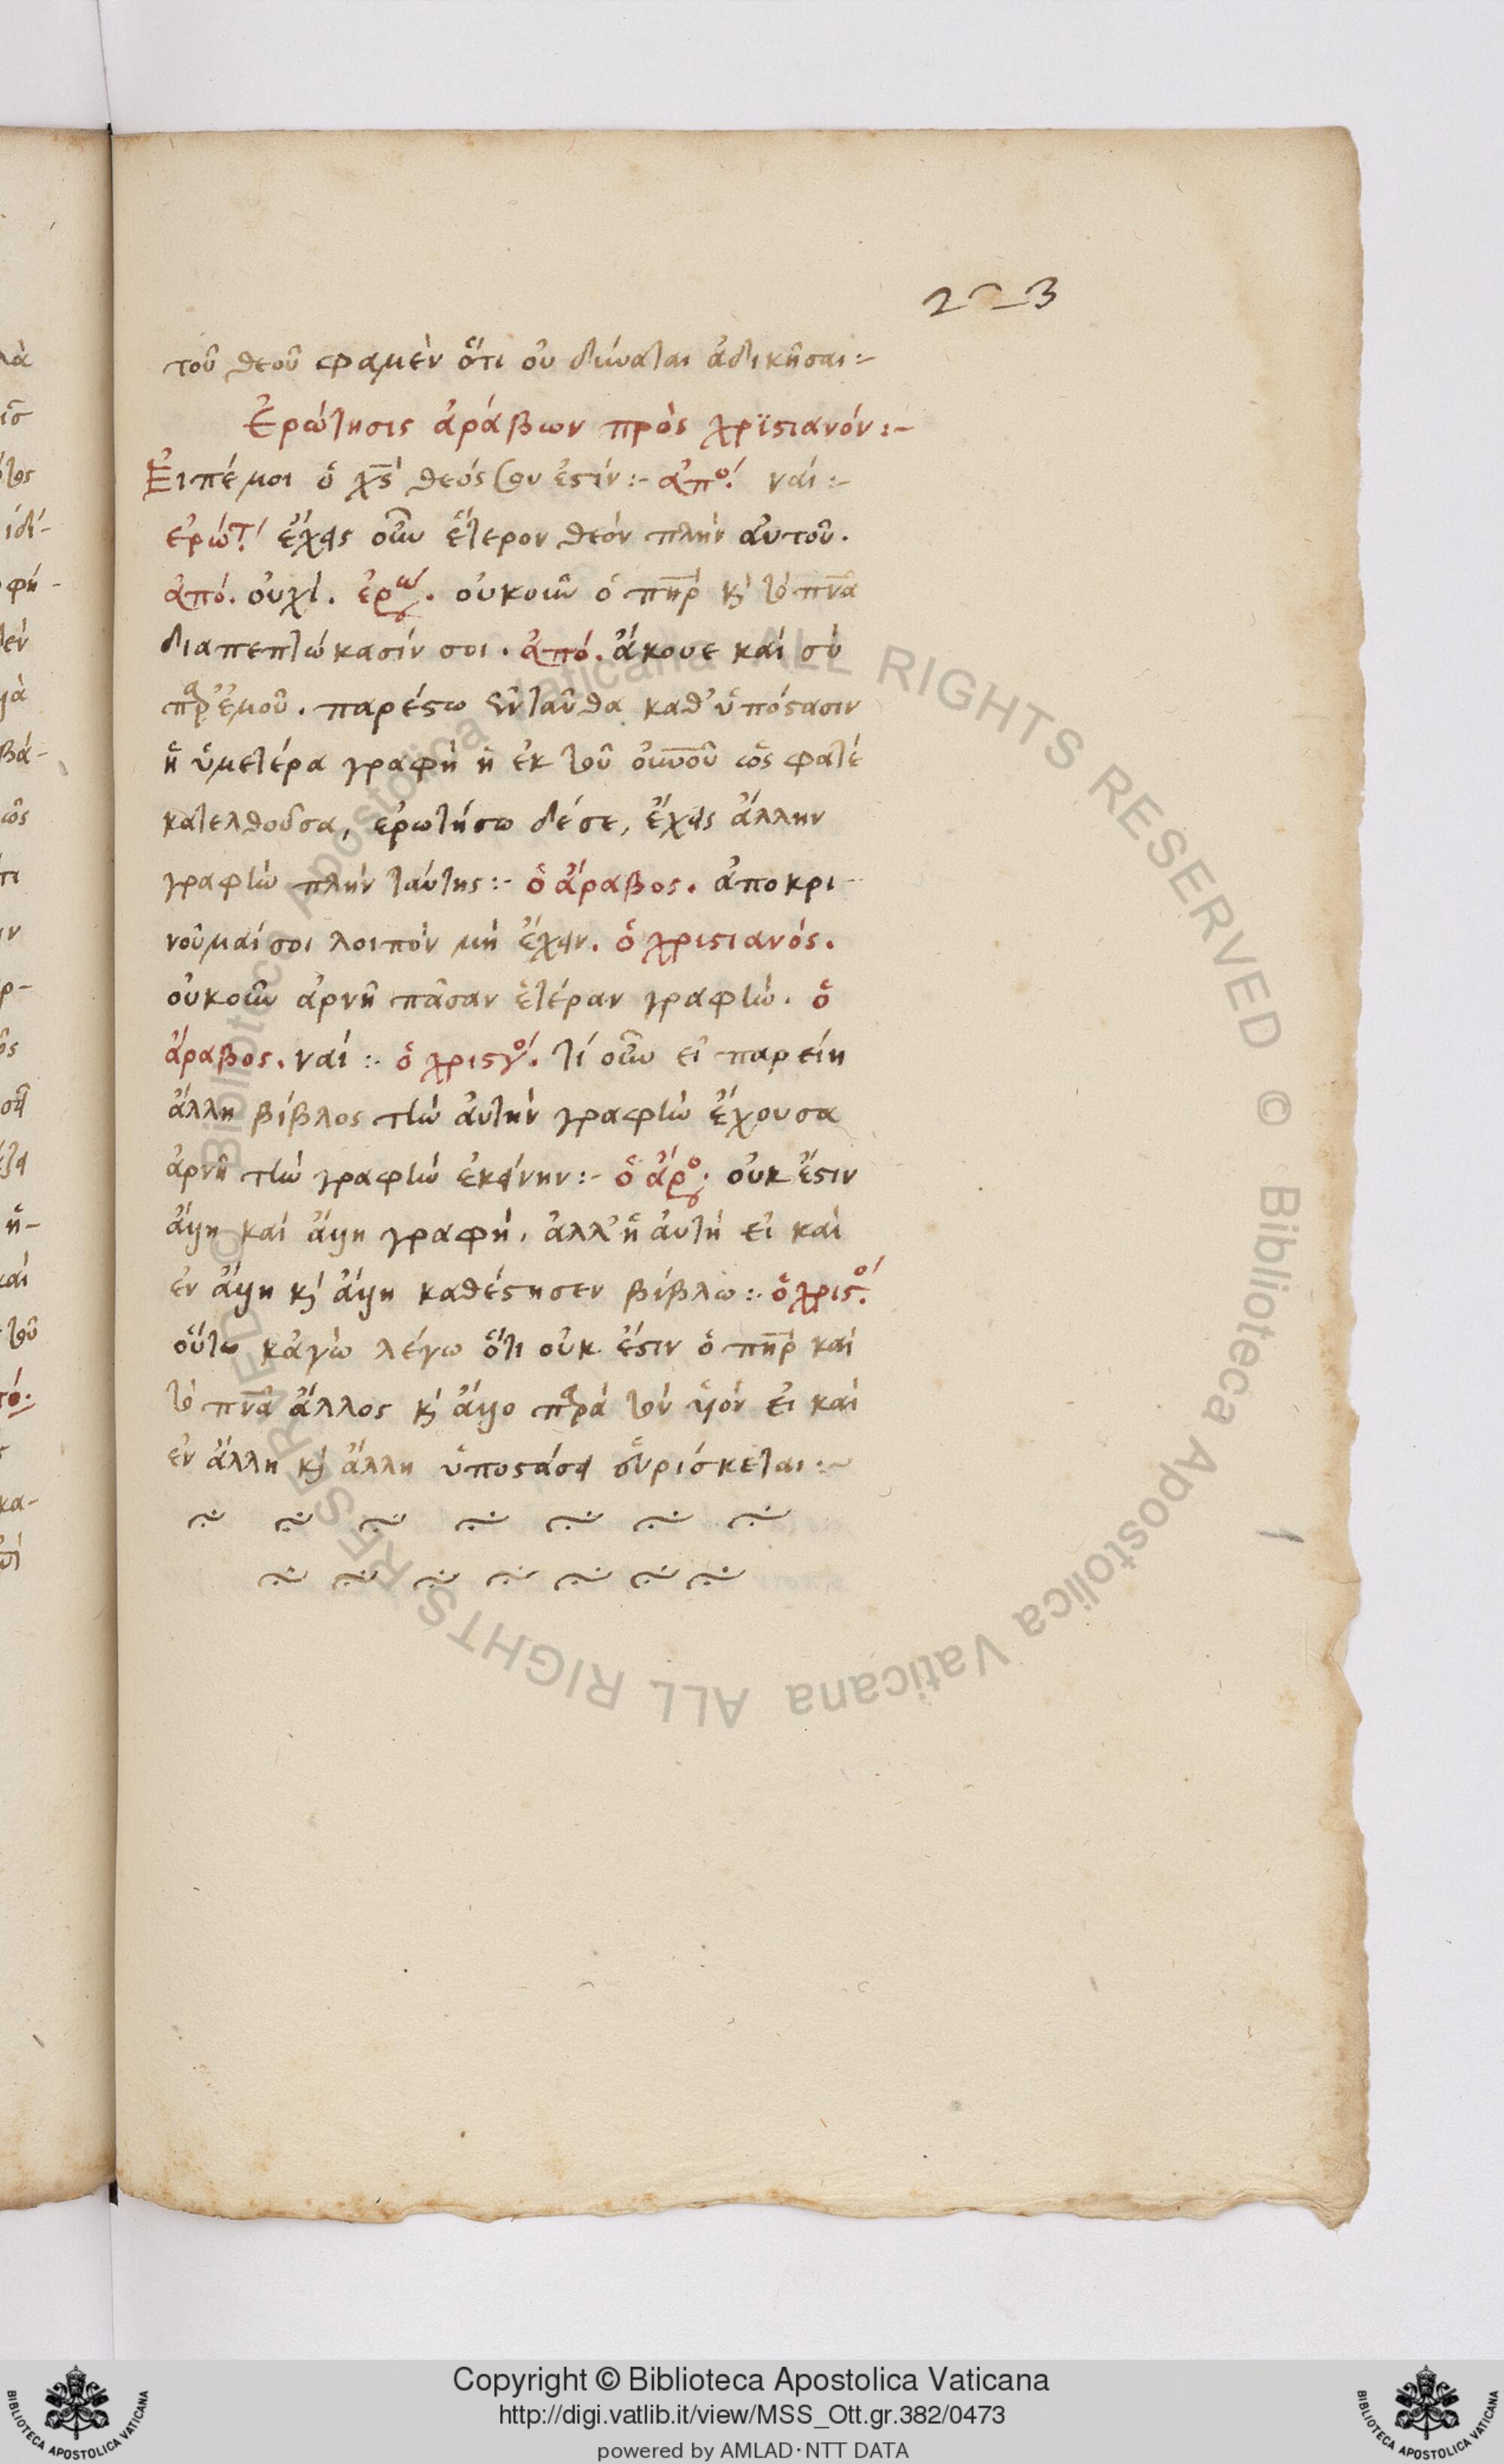 223
τοῦ θεοῦ φαμὲν ὅτι οὐ δύναται ἀδικῆσαι:-
Ἐρώτησις ἀράβων πρὸς χρϊστιανόν:-
Εἰπέ μοι ὁ χ̅ς̅ θεός σου ἐστίν:- ἀπο. ναί:-
ἐρώτ. ἔχεις οὖν ἕτερον θεὸν πλὴν αὐτοῦ.
ἀπό. οὐχί. ἐρω. οὐκοῦν ὁ π̅η̅ρ̅ κ̀ τὸ π̅ν̅α̅
διαπεπτώκασίν σοι. ἀπό. ἄκουε καὶ σὺ
παρ' ἐμοῦ. παρέστω ἐνταῦθα καθ' ὑπόστασιν
ἡ ὑμετέρα γραφὴ ἡ ἐκ τοῦ ο̅υ̅ν̅ο̅υ̅ ὥς φατε
κατελθοῦσα, ἐρωτήσω δέ σε, ἔχεις ἄλλην
γραφὴν πλὴν ταύτης:- ὁ ἄραβος. ἀποκρι-
νοῦμαί σοι λοιπὸν μὴ ἔχειν. ὁ χριστιανός.
οὐκοῦν ἀρνῆ πᾶσαν ἑτέραν γραφὴν. ὁ
ἄραβος. ναί:. ὁ χριστνο. τί οὖν εἰ παρείη
ἄλλη βίβλος τὴν αὐτὴν γραφὴν ἔχουσα
ἀρνῆ τὴν γραφὴν ἐκείνην:- ὁ ἄρο. οὐκ ἔστιν
ἄλλη καὶ ἄλλη γραφή, ἀλλ' ἡ αὐτὴ εἰ καὶ
ἐν ἄλλη κ̀ ἄλλη καθέστησεν βίβλω:. ὁ χριστο.
οὕτω κἀγὼ λέγω ὅτι οὐκ ἔστιν ὁ π̅η̅ρ̅ καὶ
τὸ π̅ν̅α̅ ἄλλος κ̀ ἄλλο παρὰ τὸν υἱόν εἰ καὶ
ἐν ἄλλη κ̀ ἄλλη ὑποστάσει εὑρίσκεται:~
© Biblioteca Apostolica Vaticana ALL RIGHTS RESERVED © Biblioteca Apostolica Vaticana ALL RIGHTS RESERVED
BIBLIOTECA APOSTOLICA VATICANA
Copyright © Biblioteca Apostolica Vaticana
http://digi.vatlib.it/view/MSS_Ott.gr.382/0473
powered by AMLAD·NTT DATA
BIBLIOTECA APOSTOLICA VATICANA